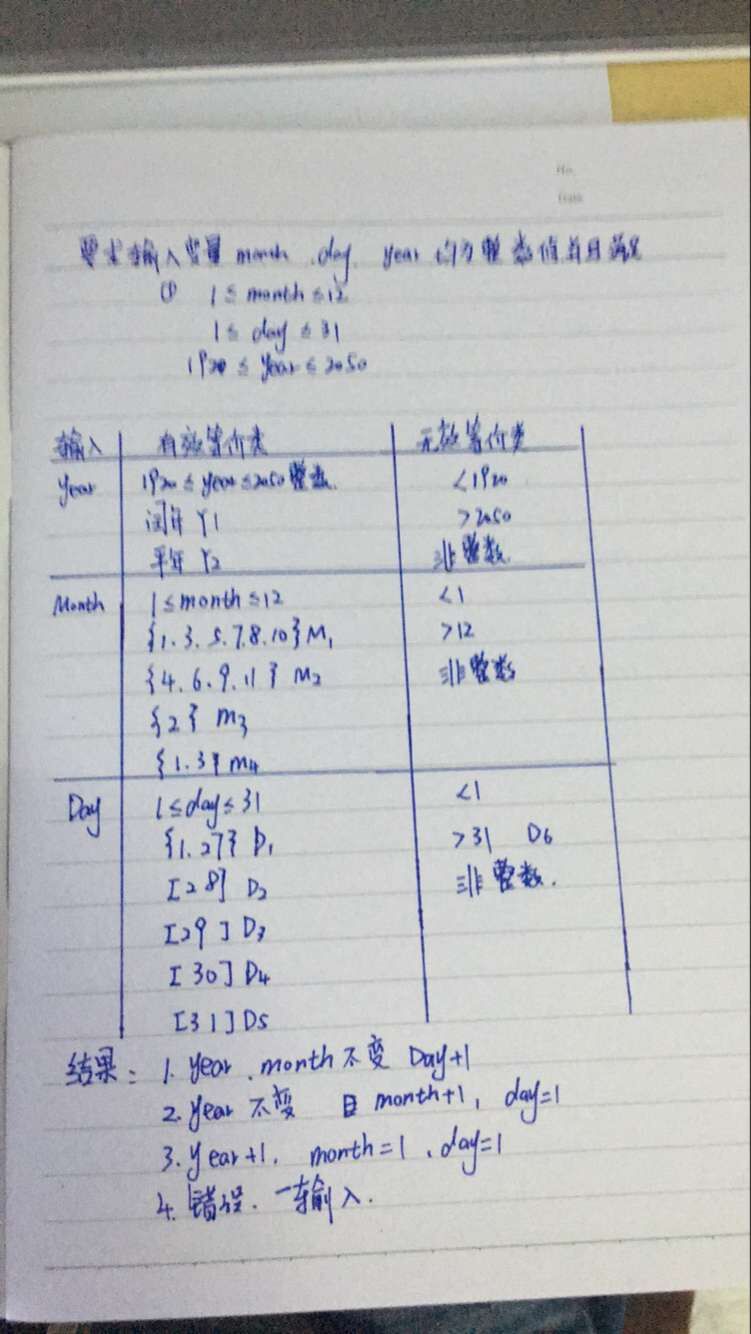 No.
Date
要求输入变量 month、day、year 均为整数值并且满足
① 1≤month≤12
1≤day≤31
1920≤year≤2050
输入 有效等价类 无效等价类
Year 1920≤year≤2050整数 <1920
闰年 Y1 >2050
平年 Y2 非整数
Month 1≤month≤12 <1
{1.3.5.7.8.10}M1 >12
{4.6.9.11} M2 非整数
{2} m3
{1.3} m4
Day 1≤day≤31 <1
{1.27} D1 >31 D6
[28] D2 非整数.
[29] D3
[30] D4
[31] D5
结果: 1. year、month不变 Day+1
2. year 不变 month+1, day=1
3. year+1. month=1、day=1
4. 错误. 输入.